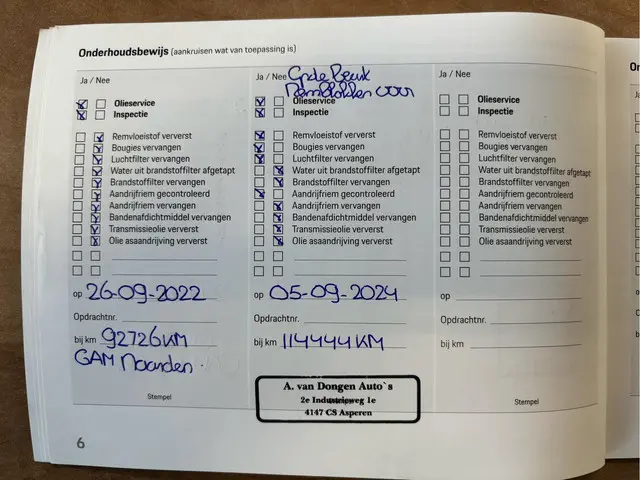 Onderhoudsbewijs (aankruisen wat van toepassing is)
Ja / Nee
Olieservice
Inspectie
Remvloeistof ververst
Bougies vervangen
Luchtfilter vervangen
Water uit brandstoffilter afgetapt
Brandstoffilter vervangen
Aandrijfriem gecontroleerd
Aandrijfriem vervangen
Bandenafdichtmiddel vervangen
Transmissieolie ververst
Olie asaandrijving ververst
op 26-09-2022
Opdrachtnr.
bij km 92726KM
GAM Naarden.
Stempel
6
Ja / Nee Grote Beurt
Remblokken voor
Olieservice
Inspectie
Remvloeistof ververst
Bougies vervangen
Luchtfilter vervangen
Water uit brandstoffilter afgetapt
Brandstoffilter vervangen
Aandrijfriem gecontroleerd
Aandrijfriem vervangen
Bandenafdichtmiddel vervangen
Transmissieolie ververst
Olie asaandrijving ververst
op 05-09-2024
Opdrachtnr.
bij km 114444KM
A. van Dongen Auto`s
2e Industrieweg 1e
4147 CS Asperen
Ja / Nee
Olieservice
Inspectie
Remvloeistof ververst
Bougies vervangen
Luchtfilter vervangen
Water uit brandstoffilter afgetapt
Brandstoffilter vervangen
Aandrijfriem gecontroleerd
Aandrijfriem vervangen
Bandenafdichtmiddel vervangen
Transmissieolie ververst
Olie asaandrijving ververst
op
Opdrachtnr.
bij km
Stempel